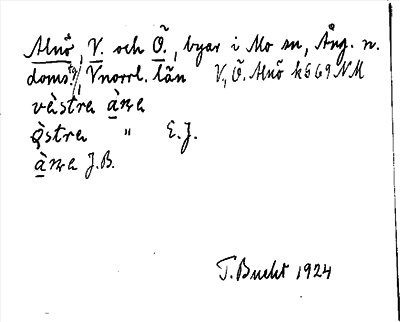 Alnö, V. och Ö., byar i Mo sn, Ång. n.
doms., Vnorrl. län V, Ö. Alnö k669 NM
västra
östra " E.J.
J.B.
T. Bucht 1924